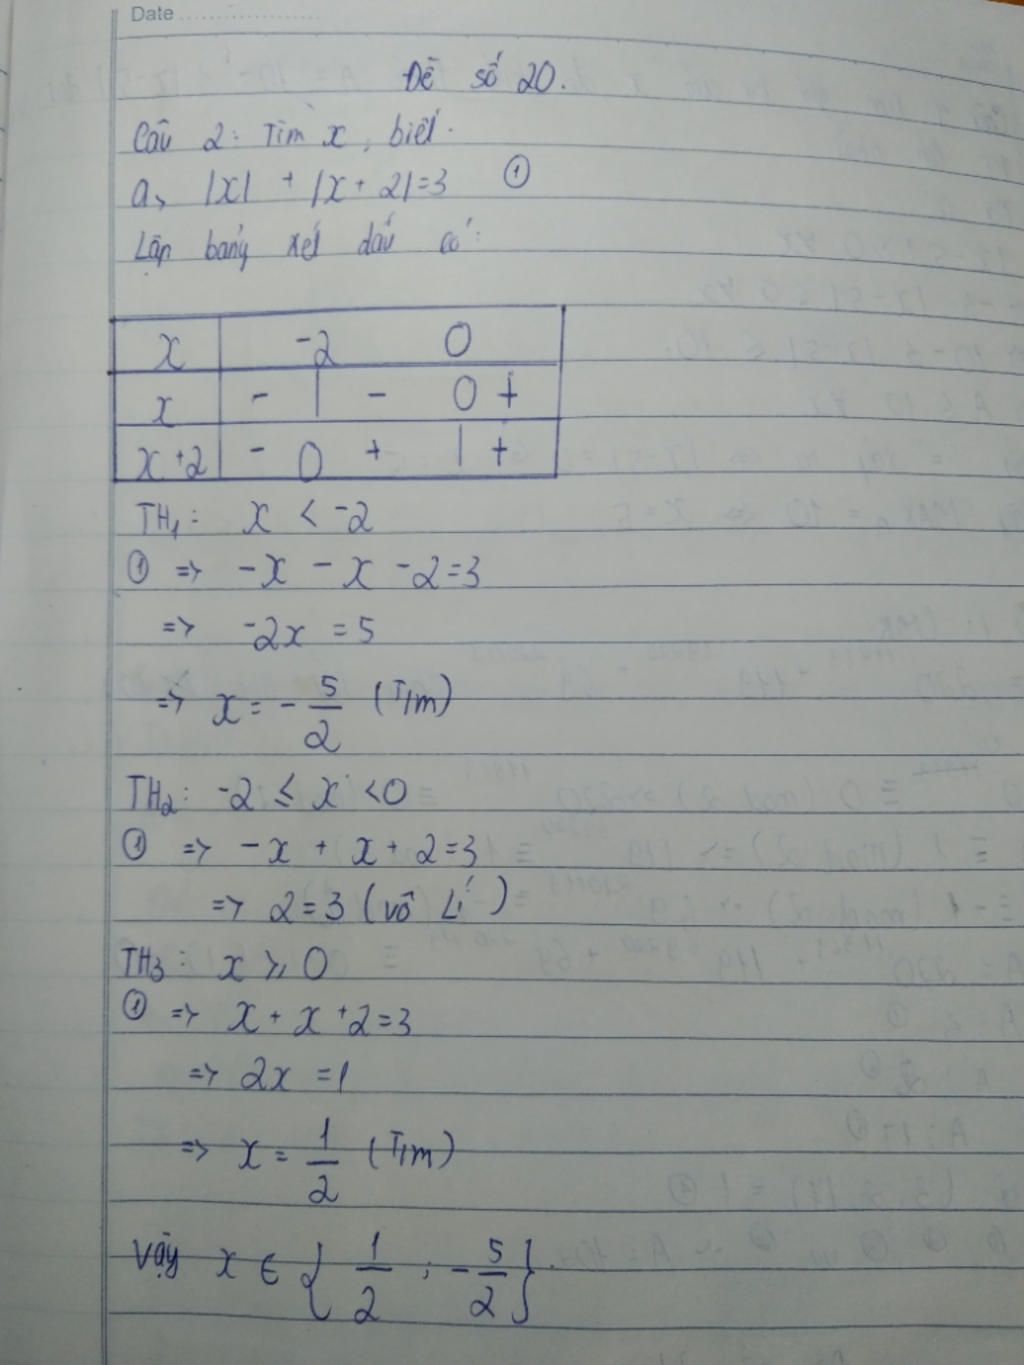 Date
Đề số 20.
Câu 2: Tìm x, biết.
a, |x| + |x + 2| = 3 ①
Lập bảng xét dấu có:
x -2 0
x - | - 0 +
x+2 - 0 + | +
TH1: x < -2
① => -x - x - 2 = 3
=> -2x = 5
=> x = - 5/2 (T/m)
TH2: -2 ≤ x < 0
① => -x + x + 2 = 3
=> 2 = 3 (vô lí)
TH3: x ≥ 0
① => x + x + 2 = 3
=> 2x = 1
=> x = 1/2 (T/m)
Vậy x ∈ { 1/2 ; - 5/2 }.